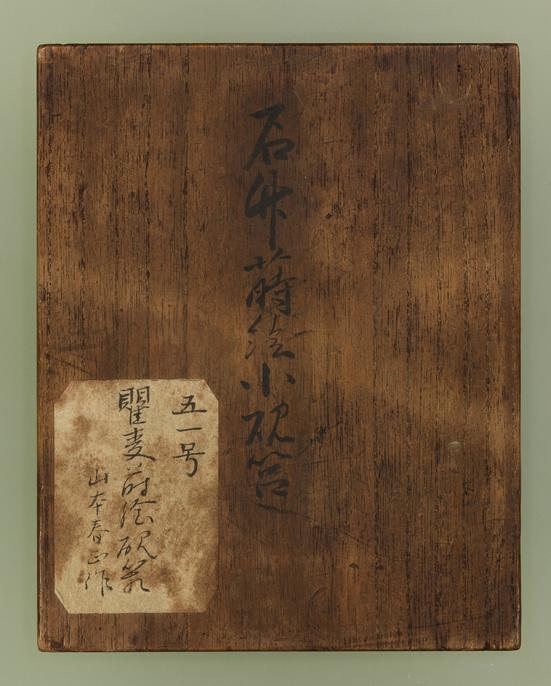 石竹蒔絵小硯筥
五一号
瞿麦蒔絵硯筥
山本春正作